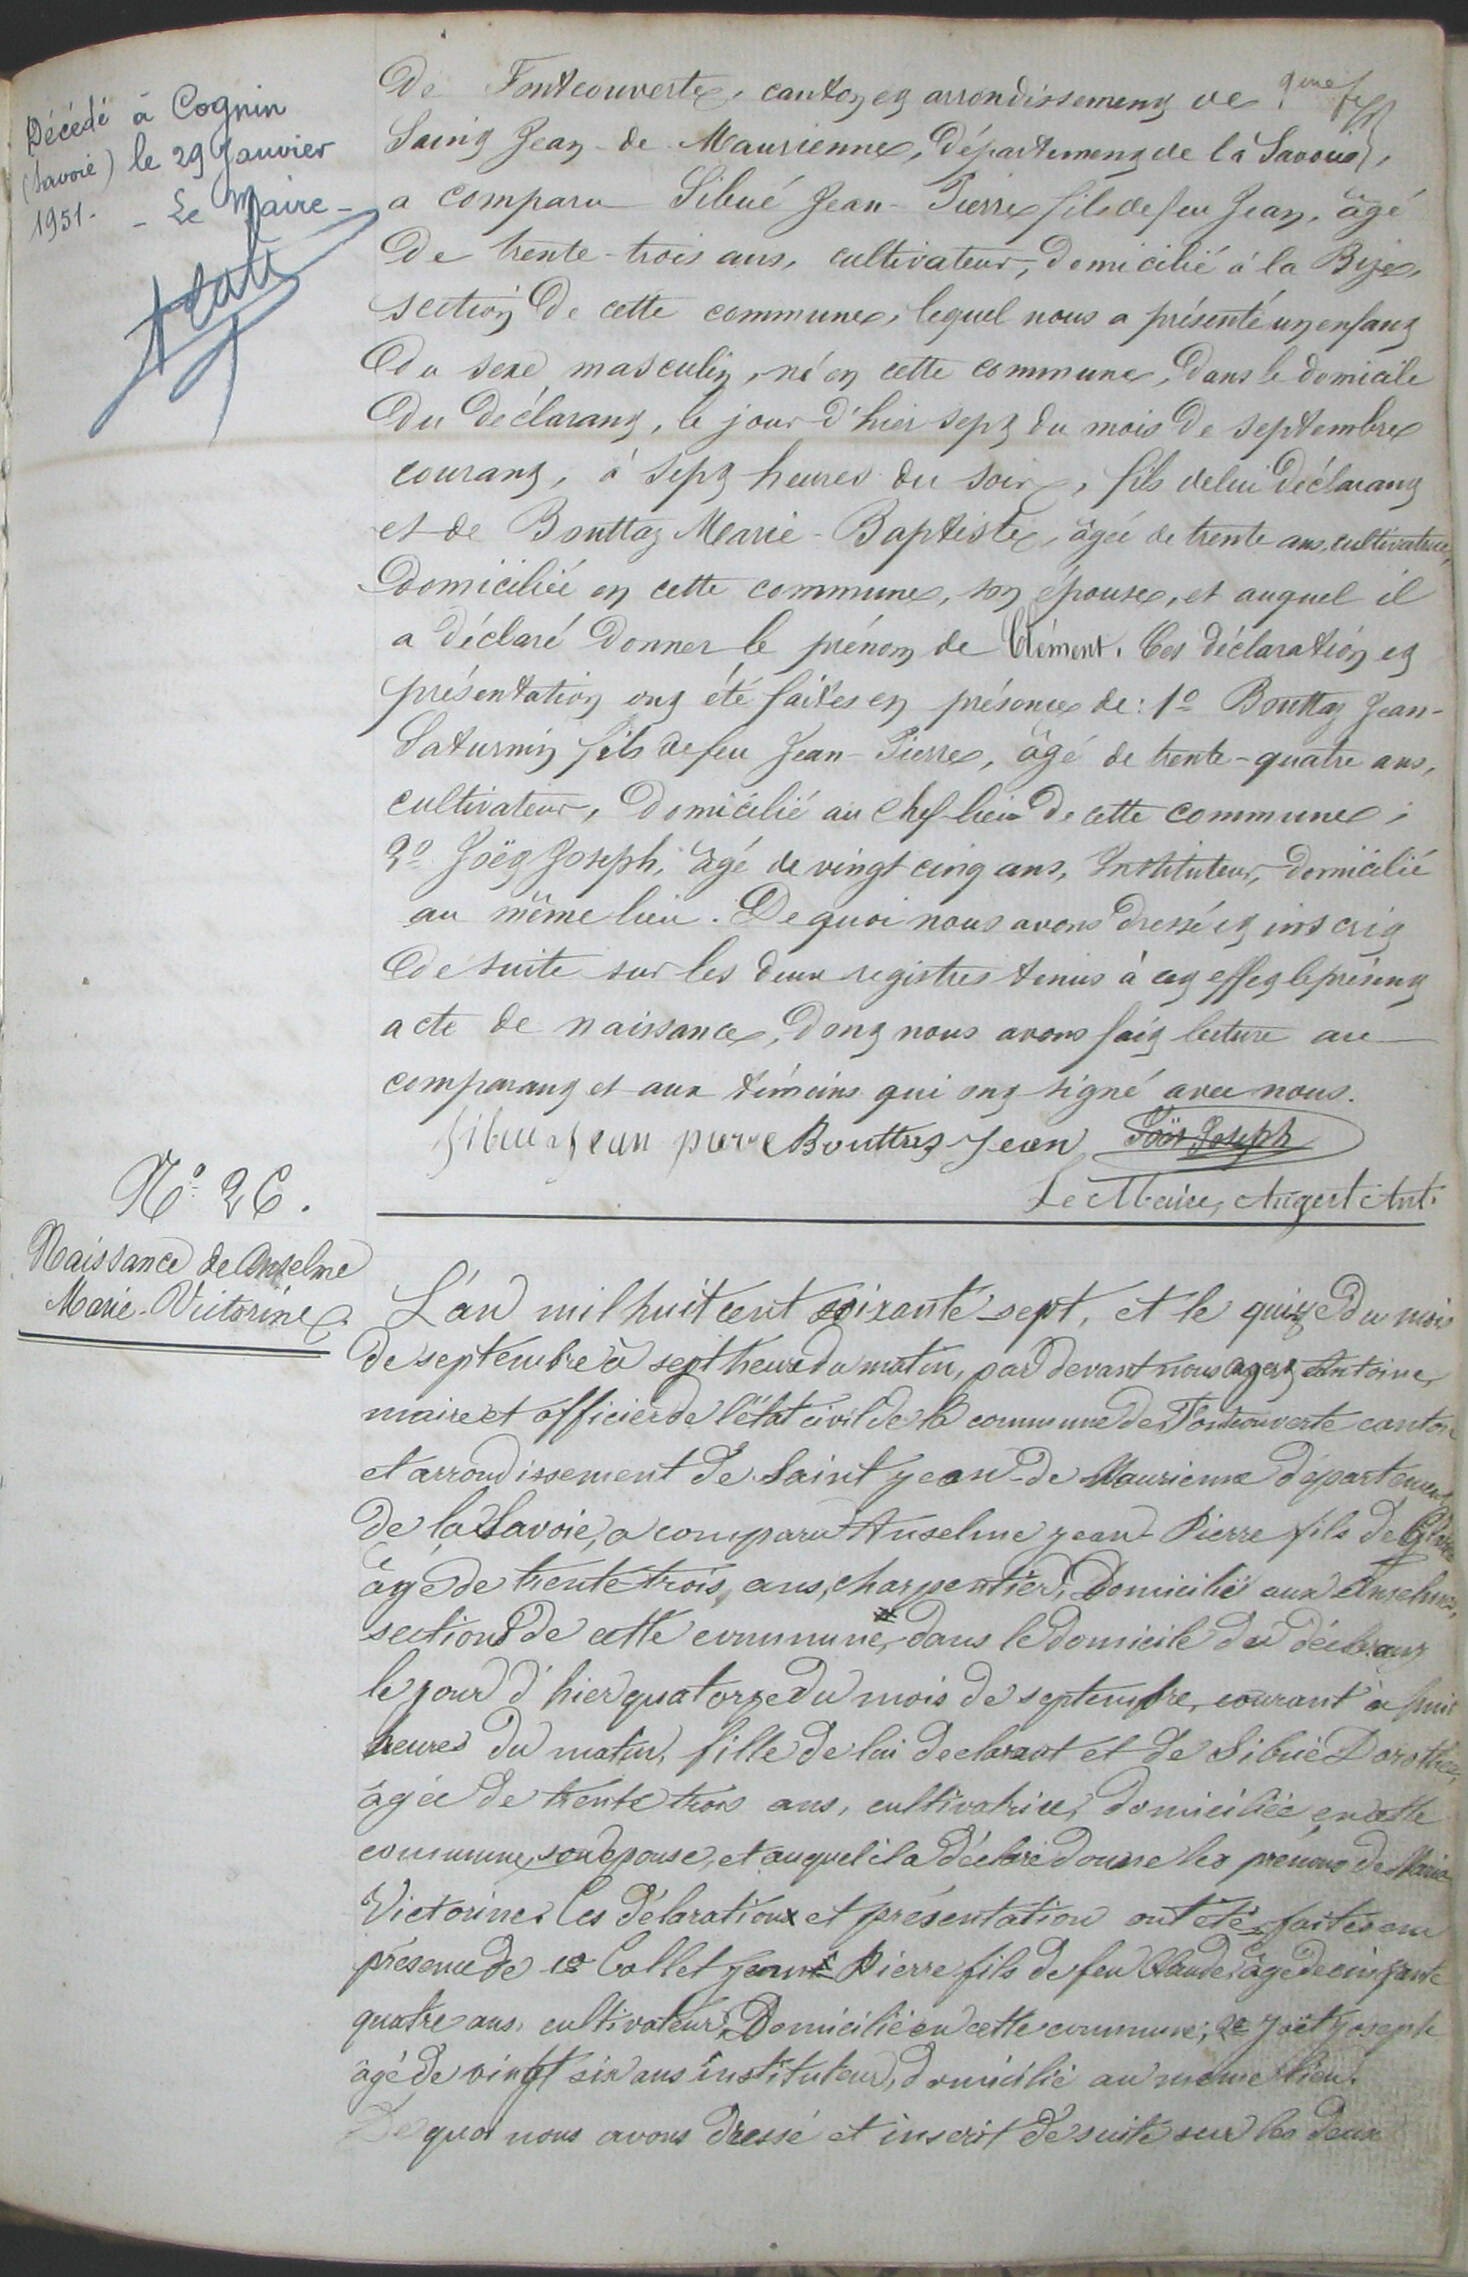 Décédé à Cognin
(Savoie) le 29 Janvier
1951. - Le Maire -
De Fontcouverte, canton et arrondissement de
Saint Jean-de Maurienne, Département de la Savoie,
a comparu Sibué Jean-Pierre fils de feu Jean, âgé
De trente-trois ans, cultivateur, Domicilié à la
section De cette commune, lequel nous a présenté un enfant
du sexe masculin, né en cette commune, Dans le domicile
Du Déclarant, le jour d'hier sept du mois De septembre
courant, à sept heures du soir, fils de lui Déclarant
et de Bouttaz Marie-Baptiste, âgée de trente ans, cultivatrice,
Domiciliée en cette commune, son épouse, et auquel il
a Déclaré Donner le prénom de Clément. Ces déclaration et
présentation ont été faites en présence de: 1º Bouttaz Jean-
Saturnin fils de feu Jean-Pierre, âgé de trente-quatre ans,
cultivateur, Domicilié au chef-lieu De cette commune;
2º Joët Joseph, âgé de vingt cinq ans, Instituteur, Domicilié
au même lieu. De quoi nous avons Dressé et inscrit
De suite sur les Deux registres tenus à cet effet le présent
acte de naissance, Dont nous avons fait lecture au
comparant et aux témoins qui ont signé avec nous.
Sibué Jean pierre Bouttaz Jean Joët Joseph
Le Maire, Augert Ant.
Nº 26.
Naissance de Anselme
Marie-Victorine
L'an mil huit cent soixante sept, et le quinze du mois
de septembre à sept heures du matin, par devant nous Antoine,
maire et officier de l'état civil de la commune de Fontcouverte canton
et arrondissement de Saint jean-de Maurienne département
de la Savoie, a comparu Anselme jean-Pierre fils de
âgé de trente trois ans, charpentier, Domicilié aux Anselmes,
section de cette commune, dans le domicile du déclarant
le jour d'hier quatorze du mois de septembre, courant à huit
heures du matin, fille de lui declarant et de Sibué Dorothée,
âgée de trente trois ans, cultivatrice, domiciliée en cette
commune, son épouse, et auquel il a déclaré donne les prénoms de Marie
Victorine. Ces déclarations et présentation ont été faites en
présence de 1º Collet jean Pierre fils de feu Claude, âgé de cinquante
quatre ans, cultivateur, Domicilié en cette commune; 2º joët joseph
âgé de vingt six ans instituteur, domicilié au même lieu.
De quoi nous avons dressé et inscrit de suite sur les deux